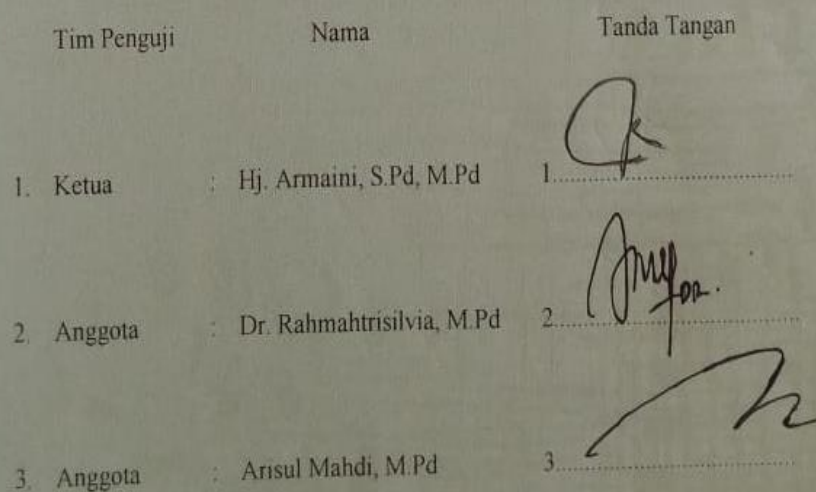 Tim Penguji Nama Tanda Tangan
1. Ketua : Hj. Armaini, S.Pd, M.Pd 1...............................
2. Anggota : Dr. Rahmahtrisilvia, M.Pd 2...............................
3. Anggota : Arisul Mahdi, M.Pd 3...............................